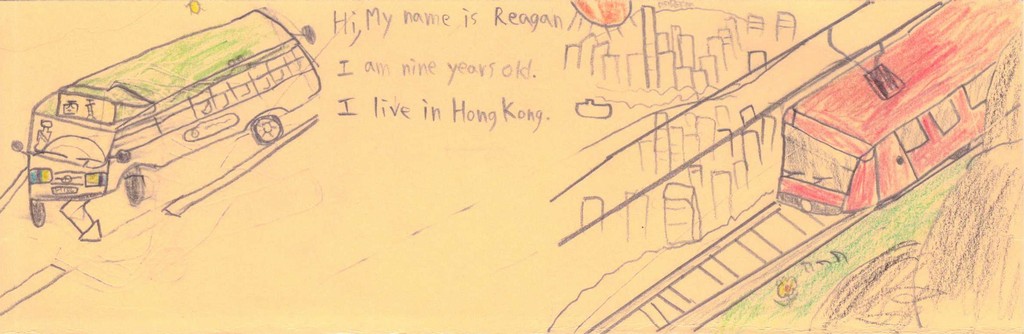 Hi, My name is Reagan
I am nine years old.
I live in Hong Kong.